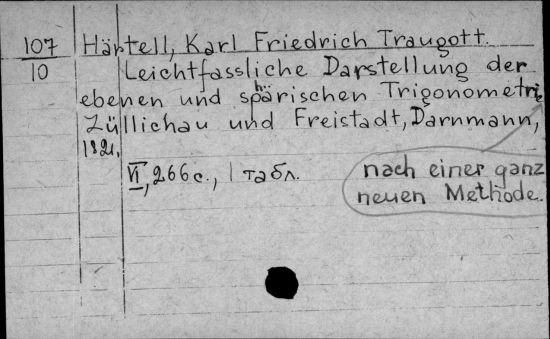 107 Härtell, Karl Friedrich Traugott.
10 Leichtfassliche Darstellung der
ebenen und sphärischen Trigonometrie
nach einer ganz
neuen Methode.
Züllichau und Freistadt, Darnmann,
1821.
VI, 266 с., 1 табл.